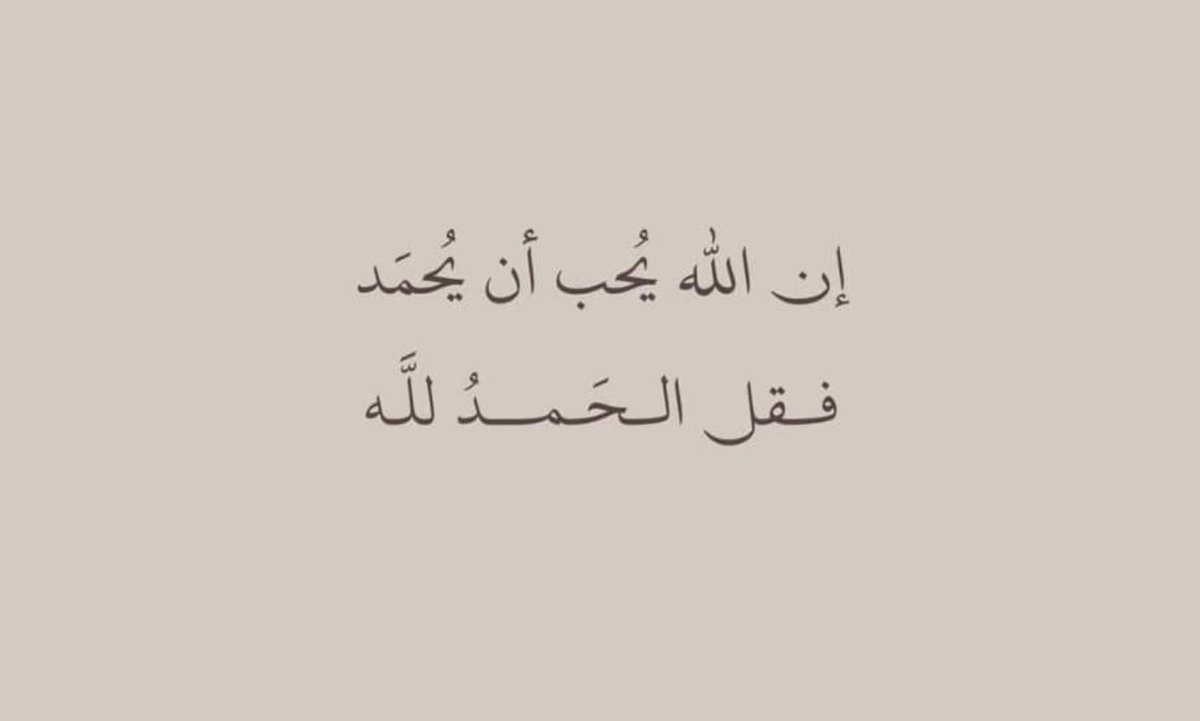 إن الله يُحب أن يُحمَد
فـقل الـحَـمـدُ للَّه